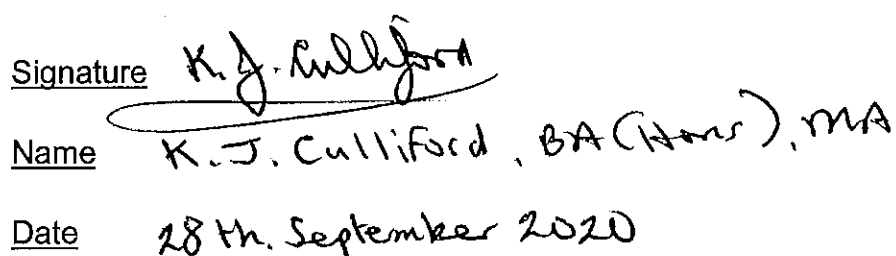 Signature K. J. Culliford
Name K. J. Culliford, BA (Hons), MA
Date 28th. September 2020